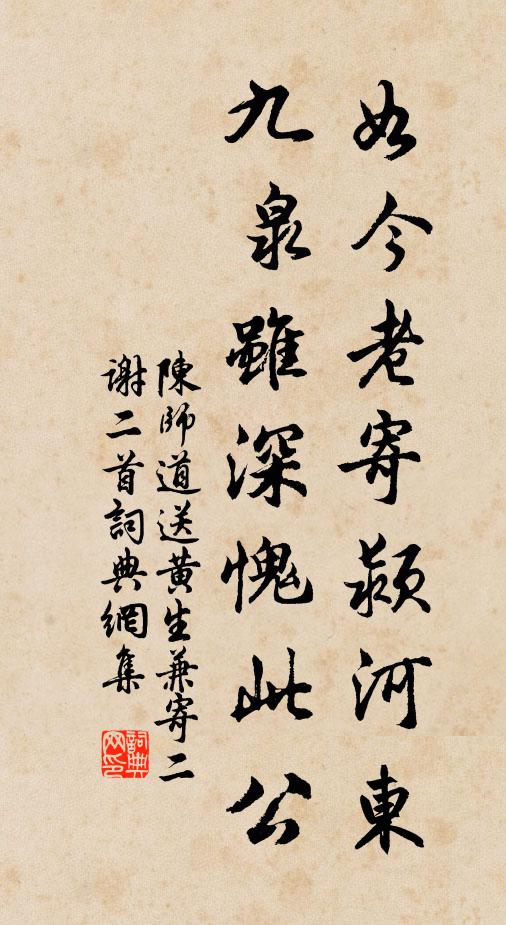 如今老寄潁河東
九泉雖深愧此公
陳師道送黃生兼寄二
謝二首詞典網集
詞典
网印